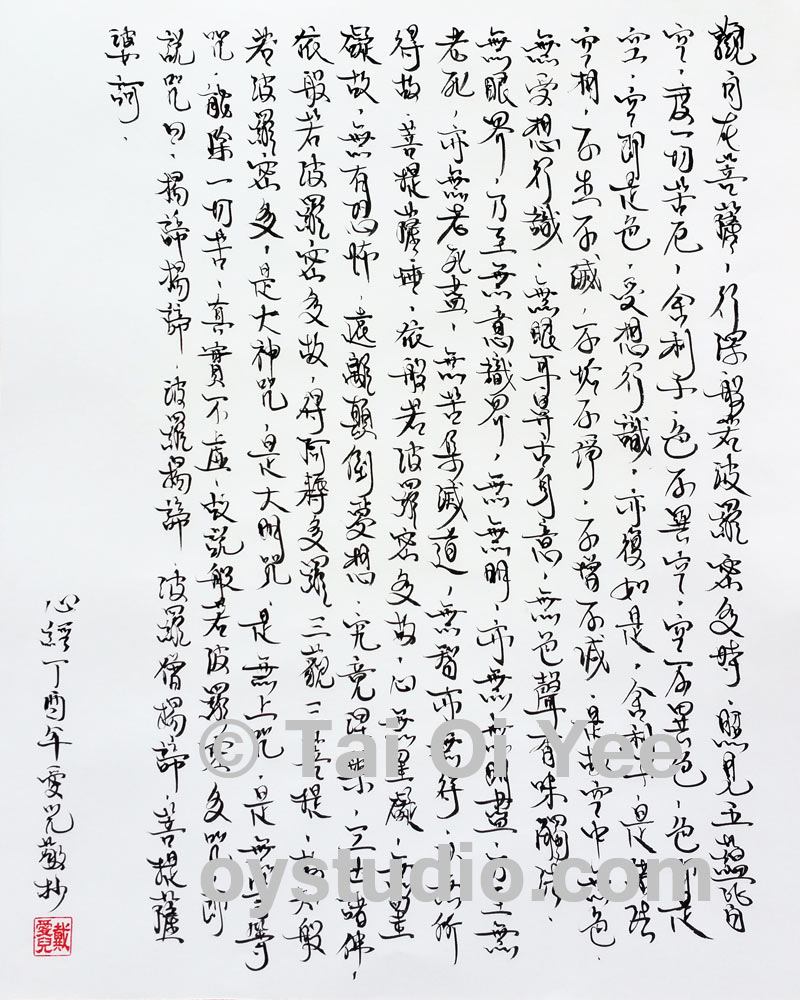 觀自在菩薩，行深般若波羅蜜多時，照見五蘊皆
空，度一切苦厄，舍利子，色不異空，空不異色，色即是
空，空即是色，受想行識，亦復如是，舍利子，是諸法
空相，不生不滅，不垢不淨，不增不減，是故空中無色，
無受想行識，無眼耳鼻舌身意，無色聲香味觸法，
無眼界，乃至無意識界，無無明，亦無無明盡，乃至無
老死，亦無老死盡，無苦集滅道，無智亦無得，以無所
得故，菩提薩埵，依般若波羅密多故，心無罣礙，無罣
礙故，無有恐怖，遠離顛倒夢想，究竟涅槃，三世諸佛，
依般若波羅密多故，得阿耨多羅三藐三菩提，故知般
若波羅密多，是大神咒，是大明咒，是無上咒，是無等等
咒，能除一切苦，真實不虛，故說般若波羅密多咒，即
說咒曰，揭諦揭諦，波羅揭諦，波羅僧揭諦，菩提薩
婆訶．
心經丁酉年愛兒敬抄
戴愛兒
© Tai Oi Yee
oystudio.com